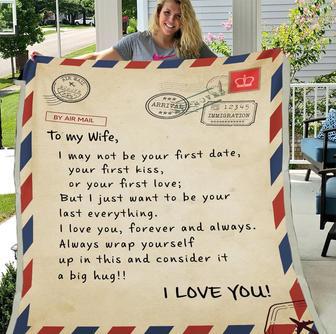 AIR MAIL
BY AIR MAIL
ARRIVAL
12345
IMMIGRATION
To my Wife,
I may not be your first date,
your first kiss,
or your first love;
But I just want to be your
last everything.
I love you, forever and always.
Always wrap yourself
up in this and consider it
a big hug!!
I LOVE YOU!